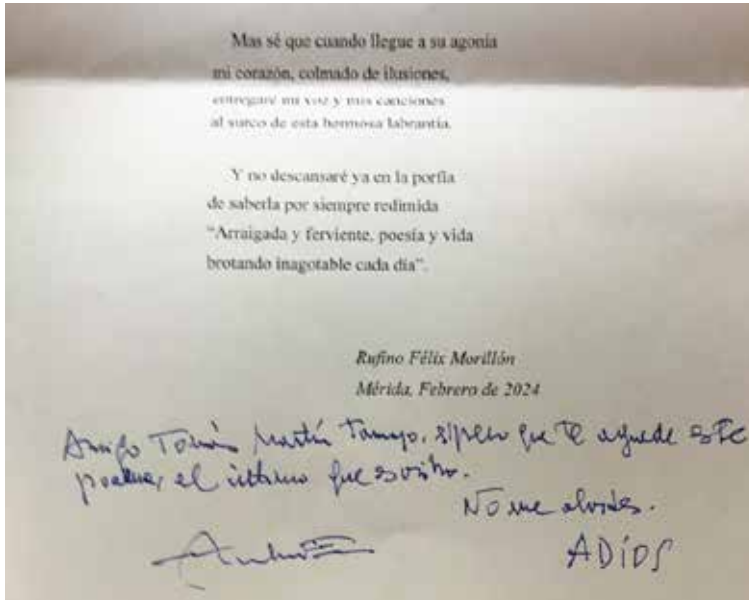 Mas sé que cuando llegue a su agonía
mi corazón, colmado de ilusiones,
entregaré mi voz y mis canciones
al surco de esta hermosa labrantía.
Y no descansaré ya en la porfía
de saberla por siempre redimida
“Arraigada y ferviente, poesía y vida
brotando inagotable cada día”.
Rufino Félix Morillón
Mérida, Febrero de 2024
Amigo Tomás Martín Tamayo, espero que te agrade este
poema, el último que escribo.
No me olvides.
ADÍOS